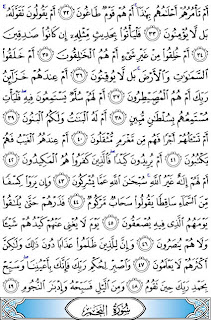 أَمْ تَأْمُرُهُمْ أَحْلَٰمُهُم بِهَٰذَآ أَمْ هُمْ قَوْمٌ طَاغُونَ ٣٢ أَمْ يَقُولُونَ تَقَوَّلَهُۥ
بَل لَّا يُؤْمِنُونَ ٣٣ فَلْيَأْتُوا۟ بِحَدِيثٍ مِّثْلِهِۦٓ إِن كَانُوا۟ صَٰدِقِينَ
٣٤ أَمْ خُلِقُوا۟ مِنْ غَيْرِ شَىْءٍ أَمْ هُمُ ٱلْخَٰلِقُونَ ٣٥ أَمْ خَلَقُوا۟
ٱلسَّمَٰوَٰتِ وَٱلْأَرْضَ بَل لَّا يُوقِنُونَ ٣٦ أَمْ عِندَهُمْ خَزَآئِنُ
رَبِّكَ أَمْ هُمُ ٱلْمُصَۣيْطِرُونَ ٣٧ أَمْ لَهُمْ سُلَّمٌ يَسْتَمِعُونَ فِيهِ فَلْيَأْتِ
مُسْتَمِعُهُم بِسُلْطَٰنٍ مُّبِينٍ ٣٨ أَمْ لَهُ ٱلْبَنَٰتُ وَلَكُمُ ٱلْبَنُونَ ٣٩
أَمْ تَسْـَٔلُهُمْ أَجْرًا فَهُم مِّن مَّغْرَمٍ مُّثْقَلُونَ ٤٠ أَمْ عِندَهُمُ ٱلْغَيْبُ فَهُمْ
يَكْتُبُونَ ٤١ أَمْ يُرِيدُونَ كَيْدًا فَٱلَّذِينَ كَفَرُوا۟ هُمُ ٱلْمَكِيدُونَ ٤٢
أَمْ لَهُمْ إِلَٰهٌ غَيْرُ ٱللَّهِ سُبْحَٰنَ ٱللَّهِ عَمَّا يُشْرِكُونَ ٤٣ وَإِن يَرَوْا۟ كِسْفًا
مِّنَ ٱلسَّمَآءِ سَاقِطًا يَقُولُوا۟ سَحَابٌ مَّرْكُومٌ ٤٤ فَذَرْهُمْ حَتَّىٰ يُلَٰقُوا۟
يَوْمَهُمُ ٱلَّذِى فِيهِ يُصْعَقُونَ ٤٥ يَوْمَ لَا يُغْنِى عَنْهُمْ كَيْدُهُمْ شَيْـًٔا
وَلَا هُمْ يُنصَرُونَ ٤٦ وَإِنَّ لِلَّذِينَ ظَلَمُوا۟ عَذَابًا دُونَ ذَٰلِكَ وَلَٰكِنَّ
أَكْثَرَهُمْ لَا يَعْلَمُونَ ٤٧ وَٱصْبِرْ لِحُكْمِ رَبِّكَ فَإِنَّكَ بِأَعْيُنِنَا وَسَبِّحْ
بِحَمْدِ رَبِّكَ حِينَ تَقُومُ ٤٨ وَمِنَ ٱلَّيْلِ فَسَبِّحْهُ وَإِدْبَٰرَ ٱلنُّجُومِ ٤٩
سُورَةُ النَّجْمِ